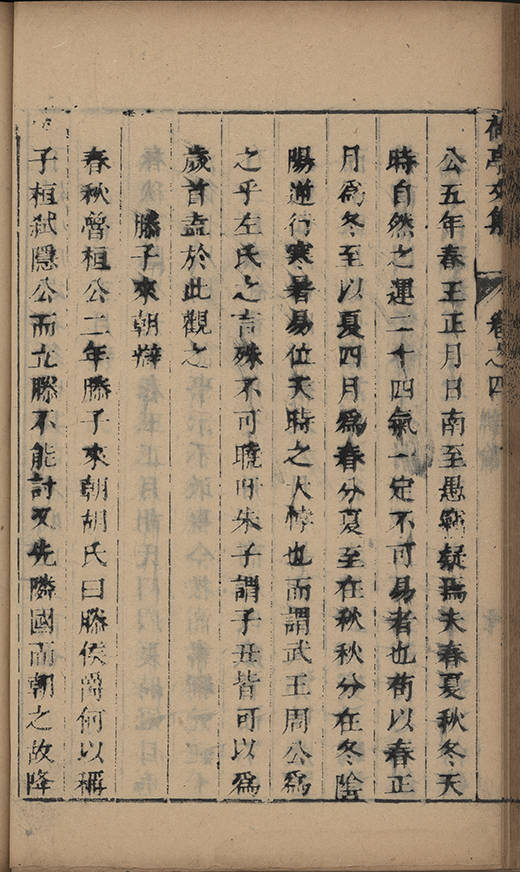 荷亭文集 卷之四
公五年春王正月日南至愚竊疑焉夫春夏秋冬天
時自然之運二十四氣一定不可易者也苟以春正
月爲冬至以夏四月爲春分夏至在秋秋分在冬陰
陽逆行寒暑易位天時之大悖也而謂武王周公爲
之乎左氏之言殊不可曉吁朱子謂子丑皆可以爲
歲首盍於此觀之
滕子來朝辯
春秋魯桓公二年滕子來朝胡氏曰滕侯爵何以稱
子桓弑隱公而立滕不能討又先隣國而朝之故降